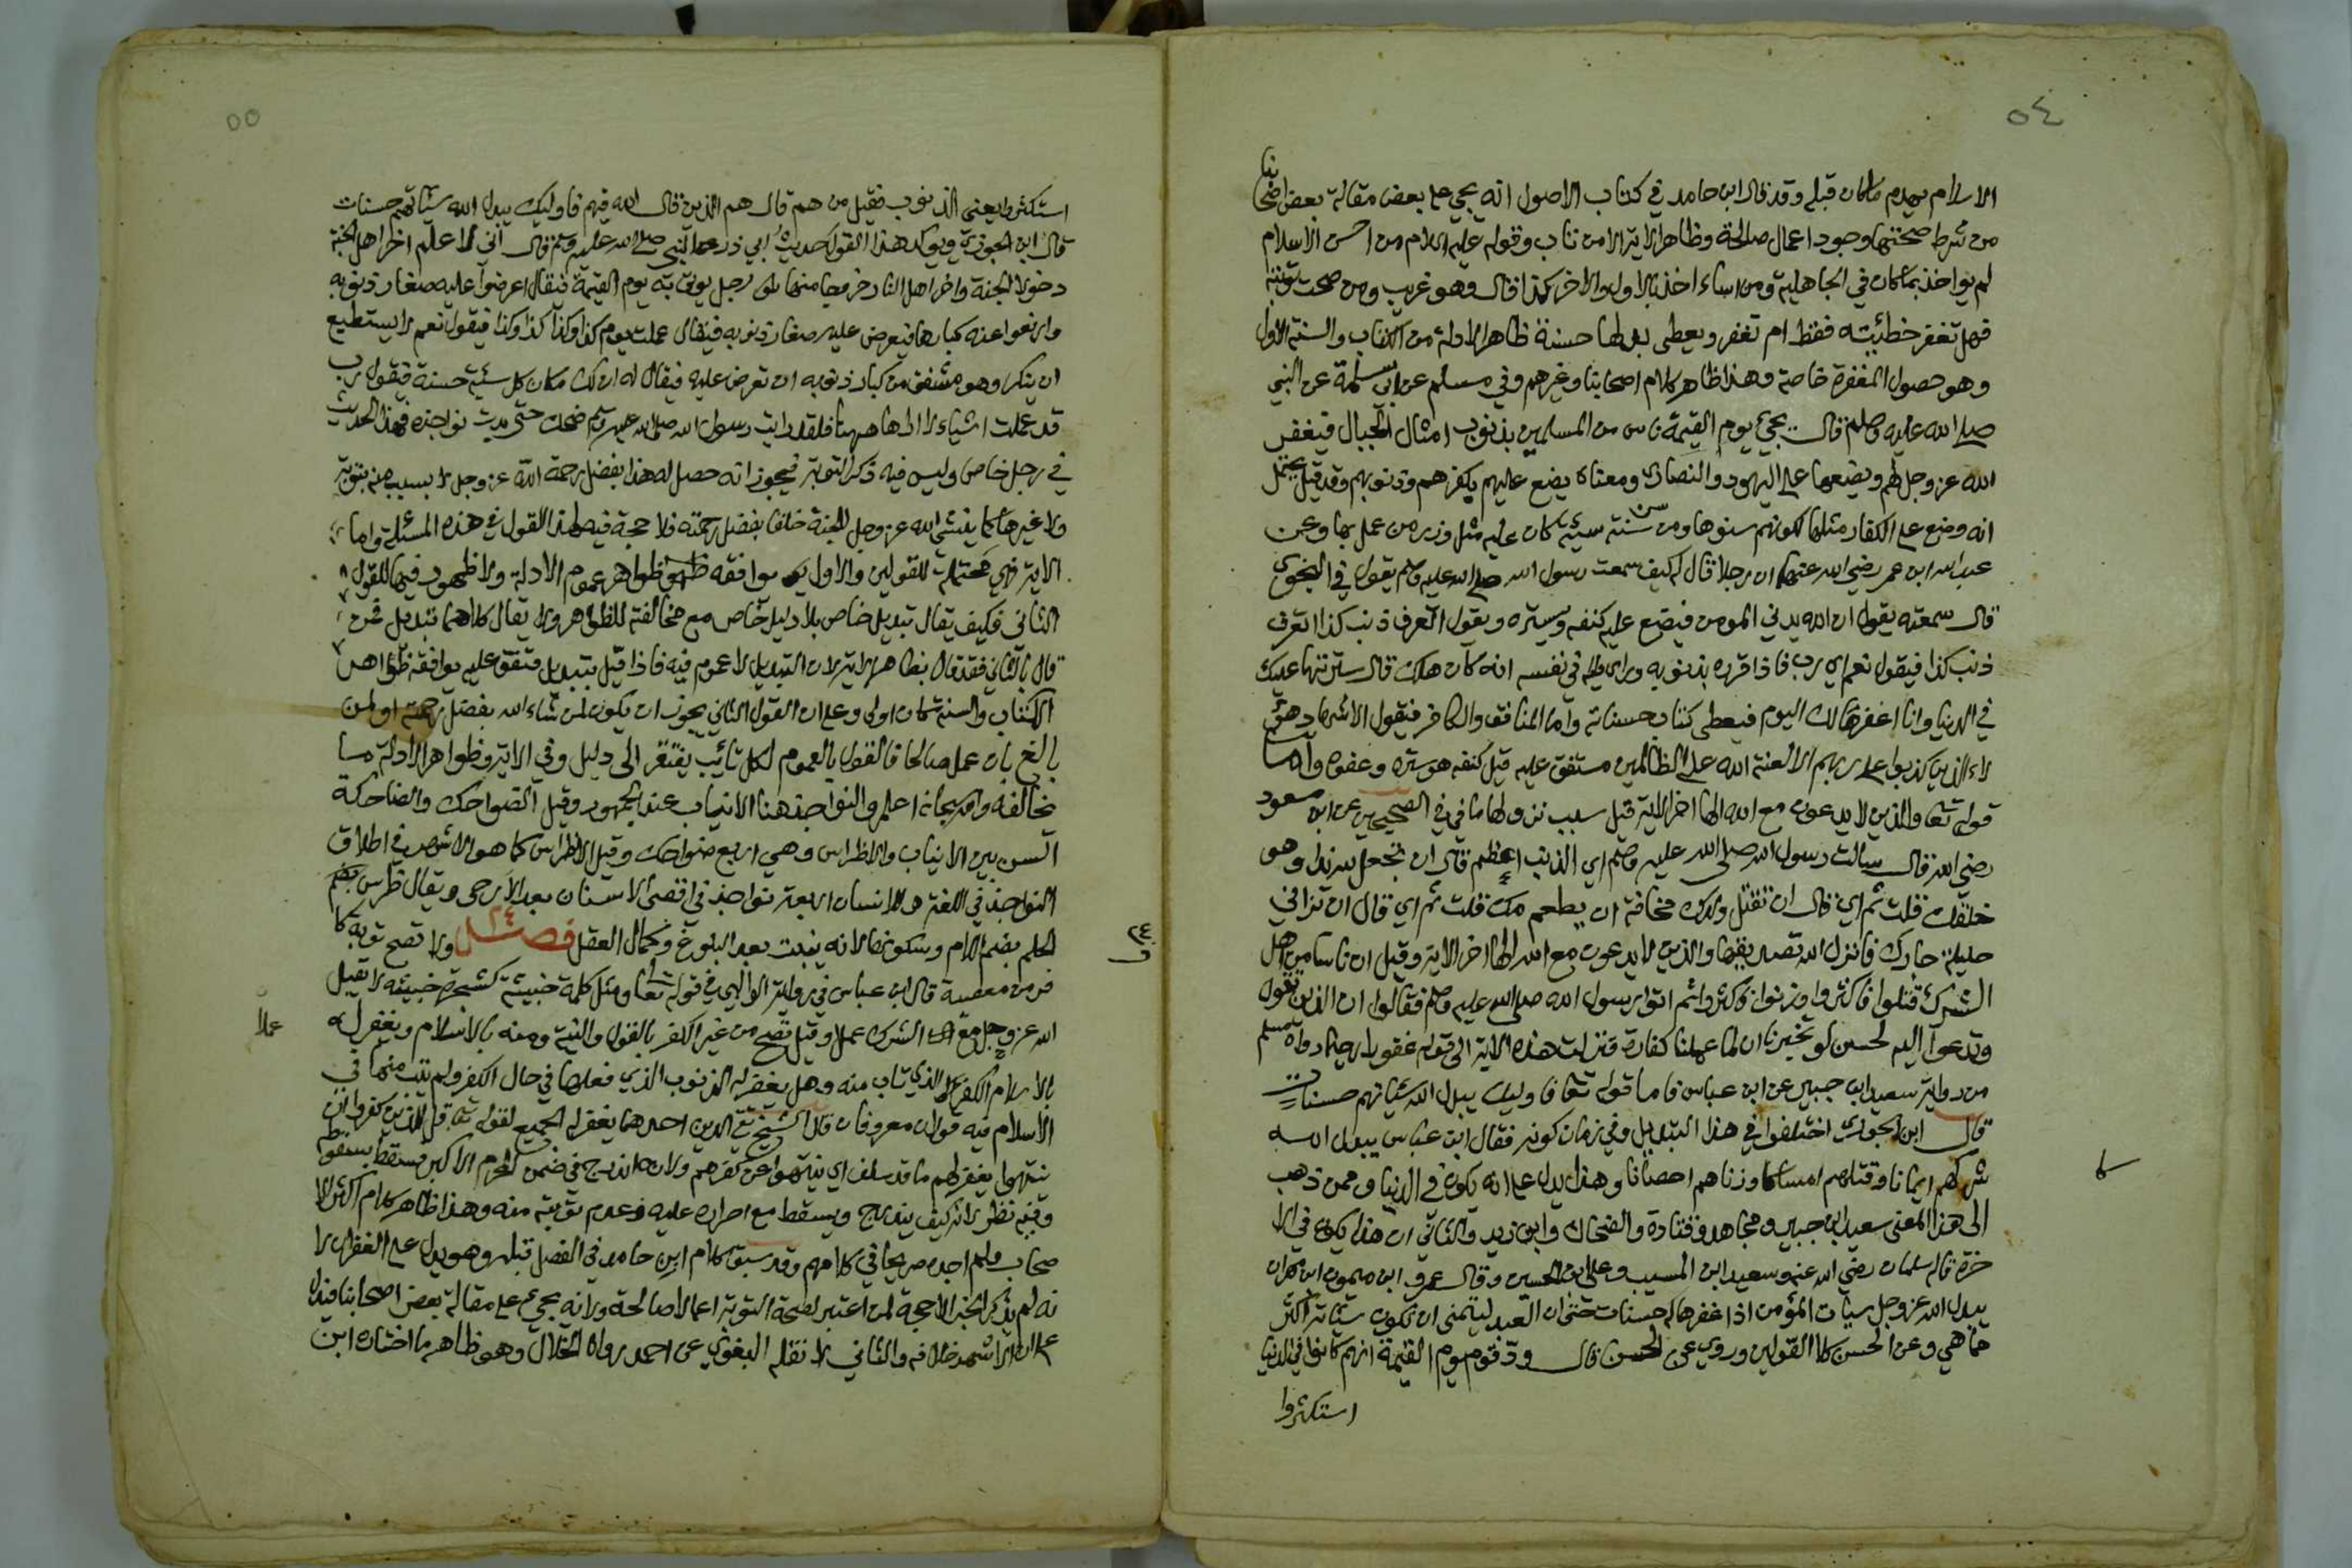 ٥٤
الاسلام يهدم ماكان قبله وقد قال ابن حامد في كتاب الاصول انه يجي على بعض مقالة بعض اصحابنا
من شرط صحتها وجود اعمال صالحة وظاهر الاية الا من تاب وقوله عليه السلام من احسن الاسلام
لم يواخذ بما كان في الجاهلية ومن اساء اخذ بالاول والاخر كذا قال وهو غريب ومن صحت توبته
فهل تغفر خطئيته فقط ام تغفر ويعطى بدلها حسنة ظاهر الادلة من الكتاب والسنة الاول
وهو حصول المغفرة خاصة وهذا ظاهر كلام اصحابنا وغيرهم وفي مسلم عن ابي سلمة عن النبي
صلى الله عليه وسلم قال يجيء يوم القيمة ناس من المسلمين بذنوب امثال الجبال فيغفر
الله عز وجل لهم ويضعها على اليهود والنصارى ومعناه يضع عليهم بكفرهم وذنوبهم وقد قيل يحتمل
انه وضع على الكفار مثلها لكونهم سنوها ومن سن سنة سيئة كان عليه مثل وزر من عمل بها وعن
عبد الله ابن عمر رضي الله عنهما ان رجلا قال له كيف سمعت رسول الله صلى الله عليه وسلم يقول في النجوى
قال سمعته يقول ان الله يدني المومن فيضع عليه كنفه وستره ويقول اتعرف ذنب كذا اتعرف
ذنب كذا فيقول نعم اي رب فاذا قرره بذنوبه وراى في نفسه انه كان هلك قال سترتها عليك
في الدنيا وانا اغفرها لك اليوم فيعطى كتاب حسناته واما المنافق والكافر فيقول الاشهاد هؤ
لاء الذين كذبوا على ربهم الا لعنة الله على الظالمين متفق عليه قيل كنفه هو ستره وعفوه واما
قوله تعا والذين لا يدعون مع الله الها اخر الاية قيل سبب نزولها ما في الصحيحين عن ابن مسعود
رضي الله قال سالت رسول الله صلى الله عليه وسلم اي الذنب اعظم قال ان تجعل لله ندا وهو
خلقك قلت ثم اي قال ان تقتل ولدك مخافة ان يطعم معك قلت ثم اي قال ان تزاني
حليلة جارك فانزل الله تصديقها والذين لا يدعون مع الله الها اخر الاية وقيل ان ناسا من اهل
الشرك قتلوا فاكثروا وزنوا فاكثروا ثم اتوا رسول الله صلى الله عليه وسلم فقالوا ان الذي تقول
وتدعوا اليه لحسن لو تخبرنا ان لما عملنا كفارة فنزلت هذه الاية الى قوله غفورا رحيما رواه مسلم
من رواية سعيد ابن جبير عن ابن عباس فاما قوله تعا فاوليك يبدل الله سيئاتهم حسنات
قال ابن الجوزي اختلفوا في هذا التبديل وفي زمان كونه فقال ابن عباس يبدل الله
شركهم ايمانا وقتلهم امساكا وزناهم احصانا وهذا يدل على انه يكون في الدنيا وممن ذهب
الى هذا المعنى سعيد ابن جبير ومجاهد وقتادة والضحاك وابن زيد والثاني ان هذا يكون في الا
خرة قاله سلمان رضي الله عنه وسعيد ابن المسيب وعلي ابن الحسين وقال عمرو ابن ميمون ابن مهران
يبدل الله عز وجل سيات المؤمن اذا غفرها له حسنات حتى ان العبد ليتمنى ان تكون سيئاته اكثر
مما هي وعن الحسن كلا القولين وروي عن الحسن قال ود قوم يوم القيمة انهم كانوا في الدنيا
استكثروا
٥٥
استكثروا يعني الذنوب فقيل من هم قال هم الذين قال الله فيهم فاوليك يبدل الله سيئاتهم حسنات
قال ابن الجوزي ويوكد هذا القول حديث ابي ذر عن النبي صلى الله عليه وسلم قال اني لا اعلم اخر اهل الجنة
دخولا الجنة واخر اهل النار خروجا منها رجل يوتى به يوم القيمة فيقال اعرضوا عليه صغار ذنوبه
وارفعوا عنه كبارها فيعرض عليه صغار ذنوبه فيقال عملت يوم كذا وكذا كذا وكذا فيقول نعم لا يستطيع
ان ينكر وهو مشفق من كبار ذنوبه ان تعرض عليه فيقال له ان لك مكان كل سيئة حسنة فيقول رب
قد عملت اشياء لا اراها ههنا فلقد رايت رسول الله صلى الله عليه وسلم ضحك حتى بدت نواجذه فهذا الحديث
في رجل خاص وليس فيه ذكر التوبة فيجوز انه حصل له هذا بفضل رحمة الله عز وجل لا بسبب منه بتوبة
ولا غيرها كما ينشئ الله عز وجل للجنة خلقا بفضل رحمته فلا حجة فيه لهذا القول في هذه المسئلة واما
الاية فهي محتملة للقولين والاول يوافقه ظواهر عموم الادلة ولا ظهور فيها للقول
الثاني فكيف يقال تبديل خاص بلا دليل خاص مع مخالفته للظواهر ولا يقال كلاهما تبديل فمن
قال بالثاني فقد قال بظاهر الاية لان التبديل لا عموم فيه فاذا قيل بتبديل متفق عليه يوافقه ظواهر
الكتاب والسنة كان اولى وعلى ان القول الثاني يجوز ان يكون لمن شاء الله بفضل رحمته او لمن
بالغ بان عمل صالحا فالقول بالعموم لكل تائيب يفتقر الى دليل وفي الاية وظواهر الادلة ما
يخالفه والله سبحانه اعلم والنواجذ هنا الانياب عند الجمهور وقيل الضواحك والضاحكة
السن بين الانياب والاضراس وهي اربع ضواحك وقيل الاضراس كما هو الاشهر في اطلاق
النواجذ في اللغة وللانسان اربعة نواجذ في اقصى الاسنان بعد الارحى ويقال ضرس
الحلم بضم اللام وسكونها لانه ينبت بعد البلوغ وكمال العقل فصل ٢٤ ولا تصح توبة كا
فر من معصية قال ابن عباس في رواية الوالبي في قوله تعا ومثل كلمة خبيثة كشجرة خبيثة لا يقبل
الله عز وجل مع الشرك عملا وقيل تصح من غير الكفر بالقول والنية ومنه بالاسلام ويغفر له
بالاسلام الكفر الذي تاب منه وهل يغفر له الذنوب الذي فعلها في حال الكفر ولم يتب منها في
الاسلام فيه قولان معروفان قال الشيخ تقي الدين احدهما يغفر له الجميع لقوله تعا قل للذين كفروا ان
ينتهوا يغفر لهم ما قد سلف اي ينتهوا عن كفرهم ولانه اندرج في ضمن المحرم الاكبر فسقط بسقوطه
وفيه نظر لانه كيف يندرج ويسقط مع اصراره عليه وعدم توبته منه وهذا ظاهر كلام اكثر الا
صحاب ولم اجده صريحا في كلامهم وقد سبق كلام ابن حامد في الفصل قبله وهو يدل على الغفران لا
نه لم يذكر الخبر الا حجة لمن اعتبر لصحة التوبة اعمالا صالحة ولانه يجيء على مقالة بعض اصحابنا فيدل
على ان الاشهر خلافه والثاني لا نقله البغوي عن احمد رواه الخلال وهو ظاهر ما اختاره ابن
٢٤
عملا